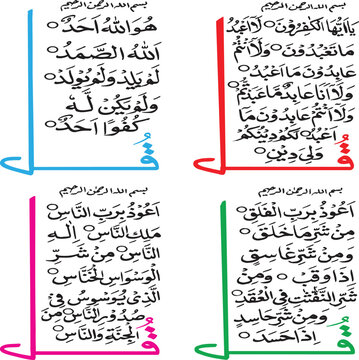 بسم الله الرحمن الرحيم
قُل
يٰۤاَيُّهَا الْكٰفِرُوْنَ لَاۤ اَعْبُدُ
مَا تَعْبُدُوْنَ وَلَاۤ اَنْتُمْ
عَابِدُوْنَ مَاۤ اَعْبُدُ
وَلَاۤ اَنَا عَابِدٌ مَّا عَبَدْتُّمْ
وَلَاۤ اَنْتُمْ عَابِدُوْنَ مَاۤ
اَعْبُدُ لَكُمْ دِيْنُكُمْ
وَلِيَ دِيْنِ
بسم الله الرحمن الرحيم
قُل
هُوَ اللهُ اَحَدٌ
اَللهُ الصَّمَدُ
لَمْ يَلِدْ وَلَمْ يُوْلَدْ
وَلَمْ يَكُنْ لَّهٗ
كُفُوًا اَحَدٌ
بسم الله الرحمن الرحيم
قُل
اَعُوْذُ بِرَبِّ الْفَلَقِ
مِنْ شَرِّ مَا خَلَقَ
وَمِنْ شَرِّ غَاسِقٍ
اِذَا وَقَبَ وَمِنْ
شَرِّ النَّفّٰثٰتِ فِي الْعُقَدِ
وَمِنْ شَرِّ حَاسِدٍ
اِذَا حَسَدَ
بسم الله الرحمن الرحيم
قُل
اَعُوْذُ بِرَبِّ النَّاسِ
مَلِكِ النَّاسِ اِلٰهِ
النَّاسِ مِنْ شَرِّ
الْوَسْوَاسِ الْخَنَّاسِ
الَّذِيْ يُوَسْوِسُ فِيْ
صُدُوْرِ النَّاسِ مِنَ
الْجِنَّةِ وَالنَّاسِ